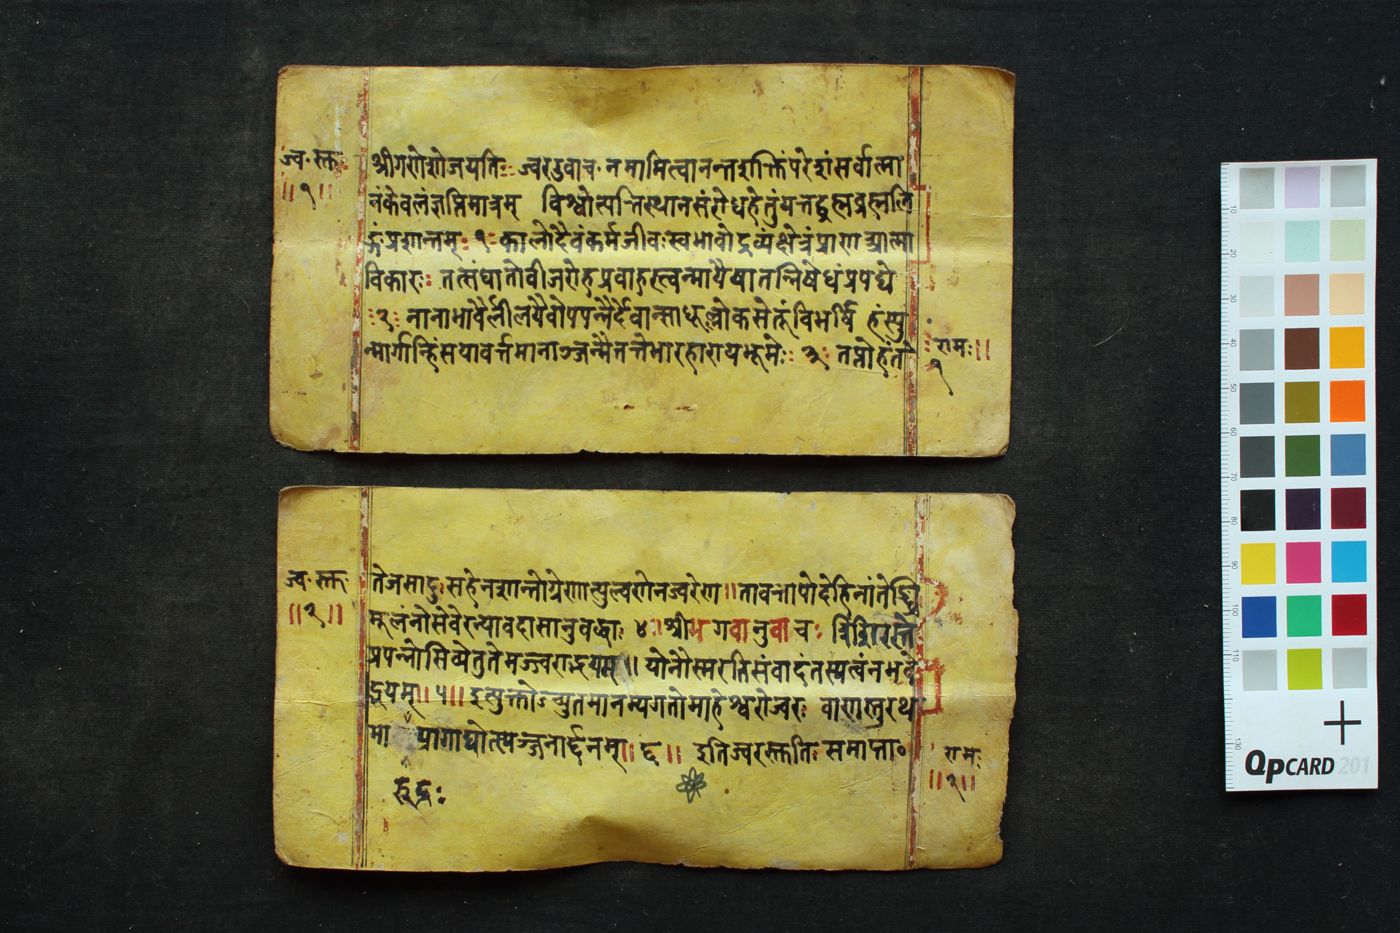 ज्व॰ स्त॰
॥१॥
श्रीगणेशोजयति॰ ज्वरउवाच॰ नमामित्वानन्तशक्तिंपरेशंसर्वात्मा
नंकेवलंज्ञप्तिमात्रम् विश्वोत्पत्तिस्थानसंरोधहेतुंयत्तद्ब्रह्मब्रह्मलि
ङ्गंप्रशान्तम्ः १ः कालोदैवंकर्मजीवःस्वभावोद्रव्यंक्षेत्रंप्राणआत्मा
विकारः तत्संघातोवीजरोहप्रवाहस्त्वन्मायैषातन्निषेधंप्रपद्ये
ः२ः नानाभावैर्लीलयैवोपपन्नैर्देवान्साधूंल्लोकसेतूंविभर्षि हंस्यु
न्मार्गान्हिंसयावर्त्तमानाञ्जन्मैतत्तेभारहारायभूमेः ३ः तप्तोहंते
रामः॥
१
ज्व॰ स्त॰
॥२॥
तेजसादुःसहेनशान्तोग्रेणात्युल्वणेनज्वरेण॥तावत्तापोदेहिनांतेङ्घ्रि
मूलंनोसेवेरन्यावदासानुवद्धाः ४ः श्रीभगवानुवाचः त्रिशिरस्ते
प्रपन्नोस्मिव्येतुतेमज्ज्वराद्भयम्॥ योनौस्मरतिसंवादंतस्यत्वंनभवे
द्भयम्॥५॥ इत्युक्तोऽच्युतमानम्यगतोमाहेश्वरोज्वरः वाणस्तुरथ
मा प्रागाद्योत्स्यञ्जनार्द्दनम्॥६॥ इतिज्वरस्ततिः समाप्ता॰
रूढः
रामः
॥२॥
QPCARD 201